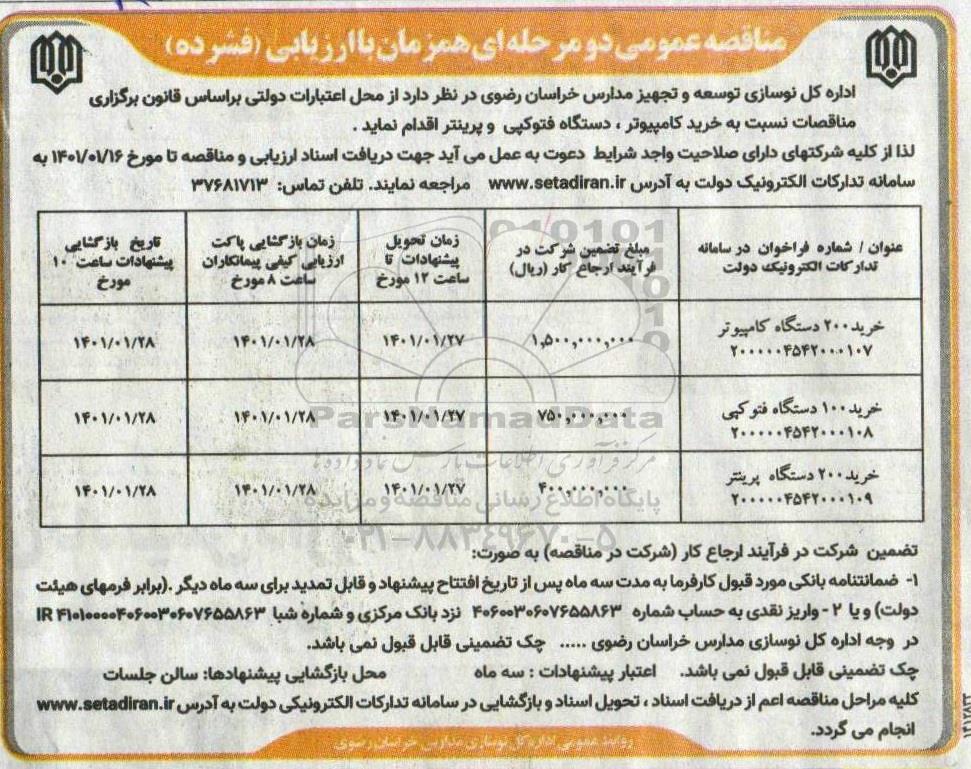 مناقصه عمومی دو مرحله ای همزمان با ارزیابی (فشرده)
اداره کل نوسازی توسعه و تجهیز مدارس خراسان رضوی در نظر دارد از محل اعتبارات دولتی براساس قانون برگزاری
مناقصات نسبت به خرید کامپیوتر ، دستگاه فتوکپی و پرینتر اقدام نماید .
لذا از کلیه شرکتهای دارای صلاحیت واجد شرایط دعوت به عمل می آید جهت دریافت اسناد ارزیابی و مناقصه تا مورخ ۱۴۰۱/۰۱/۱۶ به
سامانه تدارکات الکترونیک دولت به آدرس www.setadiran.ir مراجعه نمایند. تلفن تماس: ۳۷۶۸۱۷۱۳
عنوان / شماره فراخوان در سامانه
تدارکات الکترونیک دولت
مبلغ تضمین شرکت در
فرآیند ارجاع کار (ریال)
زمان تحویل
پیشنهادات تا
ساعت ۱۲ مورخ
زمان بازگشایی پاکت
ارزیابی کیفی پیمانکاران
ساعت ۸ مورخ
تاریخ بازگشایی
پیشنهادات ساعت ۱۰
مورخ
خرید ۲۰۰ دستگاه کامپیوتر
۲۰۰۰۰۰۴۵۴۲۰۰۰۱۰۷
۱,۵۰۰,۰۰۰,۰۰۰
۱۴۰۱/۰۱/۲۷
۱۴۰۱/۰۱/۲۸
۱۴۰۱/۰۱/۲۸
خرید ۱۰۰ دستگاه فتوکپی
۲۰۰۰۰۰۴۵۴۲۰۰۰۱۰۸
۷۵۰,۰۰۰,۰۰۰
۱۴۰۱/۰۱/۲۷
۱۴۰۱/۰۱/۲۸
۱۴۰۱/۰۱/۲۸
خرید ۲۰۰ دستگاه پرینتر
۲۰۰۰۰۰۴۵۴۲۰۰۰۱۰۹
۴۰۰,۰۰۰,۰۰۰
۱۴۰۱/۰۱/۲۷
۱۴۰۱/۰۱/۲۸
۱۴۰۱/۰۱/۲۸
ParsNamadData
مرکز فرآوری اطلاعات پارس نماد داده ها
پایگاه اطلاع رسانی مناقصه و مزایده
۰۲۱-۸۸۳۴۹۶۷۰-۵
تضمین شرکت در فرآیند ارجاع کار (شرکت در مناقصه) به صورت:
۱- ضمانتنامه بانکی مورد قبول کارفرما به مدت سه ماه پس از تاریخ افتتاح پیشنهاد و قابل تمدید برای سه ماه دیگر .(برابر فرمهای هیئت
دولت) و یا ۲ - واریز نقدی به حساب شماره ۴۰۶۰۰۳۰۶۰۷۶۵۵۸۶۳ نزد بانک مرکزی و شماره شبا IR ۴۱۰۱۰۰۰۰۴۰۶۰۰۳۰۶۰۷۶۵۵۸۶۳
در وجه اداره کل نوسازی مدارس خراسان رضوی ..... چک تضمینی قابل قبول نمی باشد.
چک تضمینی قابل قبول نمی باشد. اعتبار پیشنهادات : سه ماه محل بازگشایی پیشنهادها: سالن جلسات
کلیه مراحل مناقصه اعم از دریافت اسناد ، تحویل اسناد و بازگشایی در سامانه تدارکات الکترونیکی دولت به آدرس www.setadiran.ir
انجام می گردد.
روابط عمومی اداره کل نوسازی مدارس خراسان رضوی